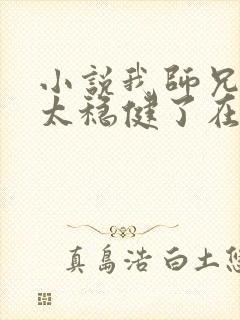 小說我師兄
太穩健了在
真島浩白土悠